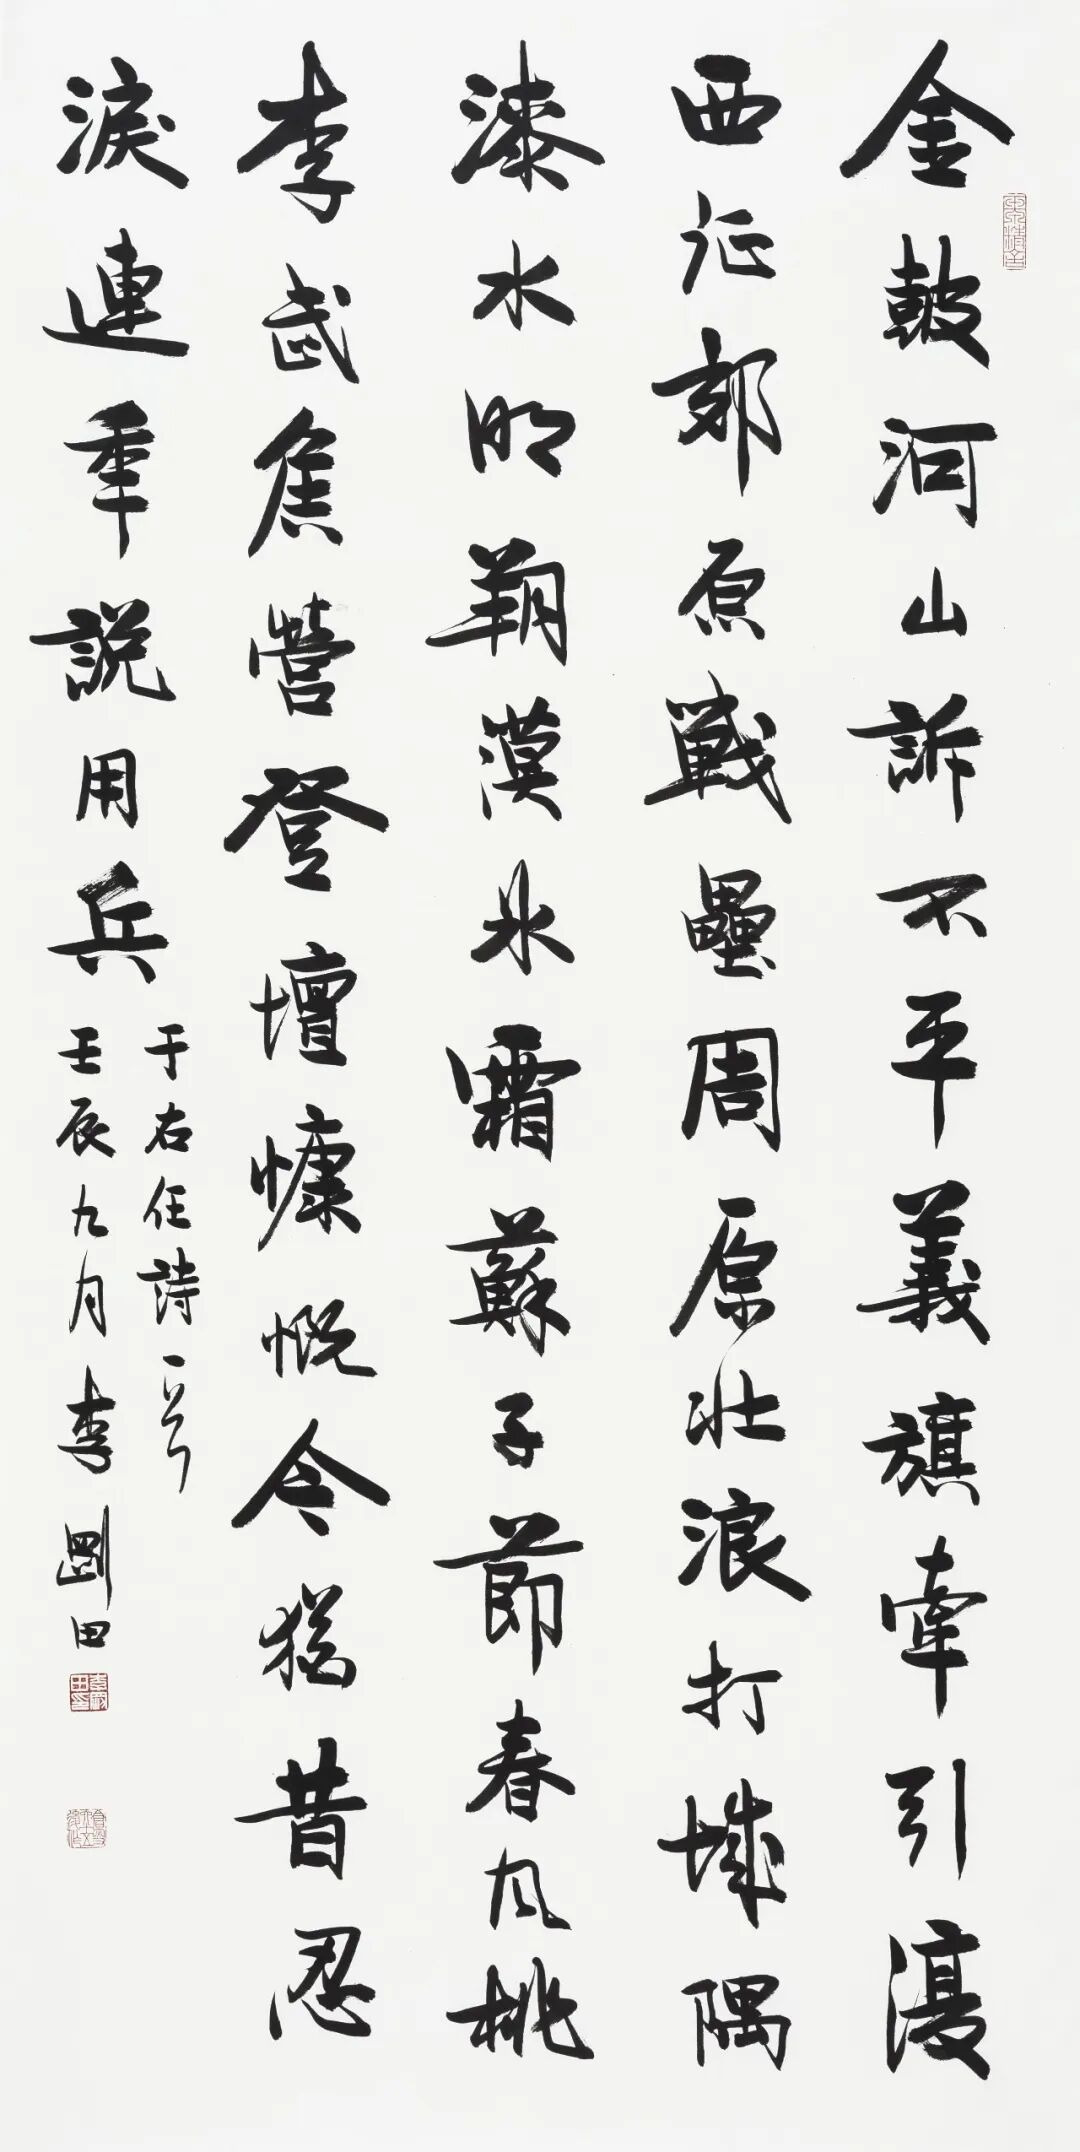 金鼓河山訴不平義旗牽引復
西征郊原戰壘周原壯浪打城隅
漆水明朔漠冰霜蘇子節春風桃
李武侯營登壇慷慨今猶昔忍
淚連年說用兵
于右任詩一首
壬辰九月李剛田
李剛田印